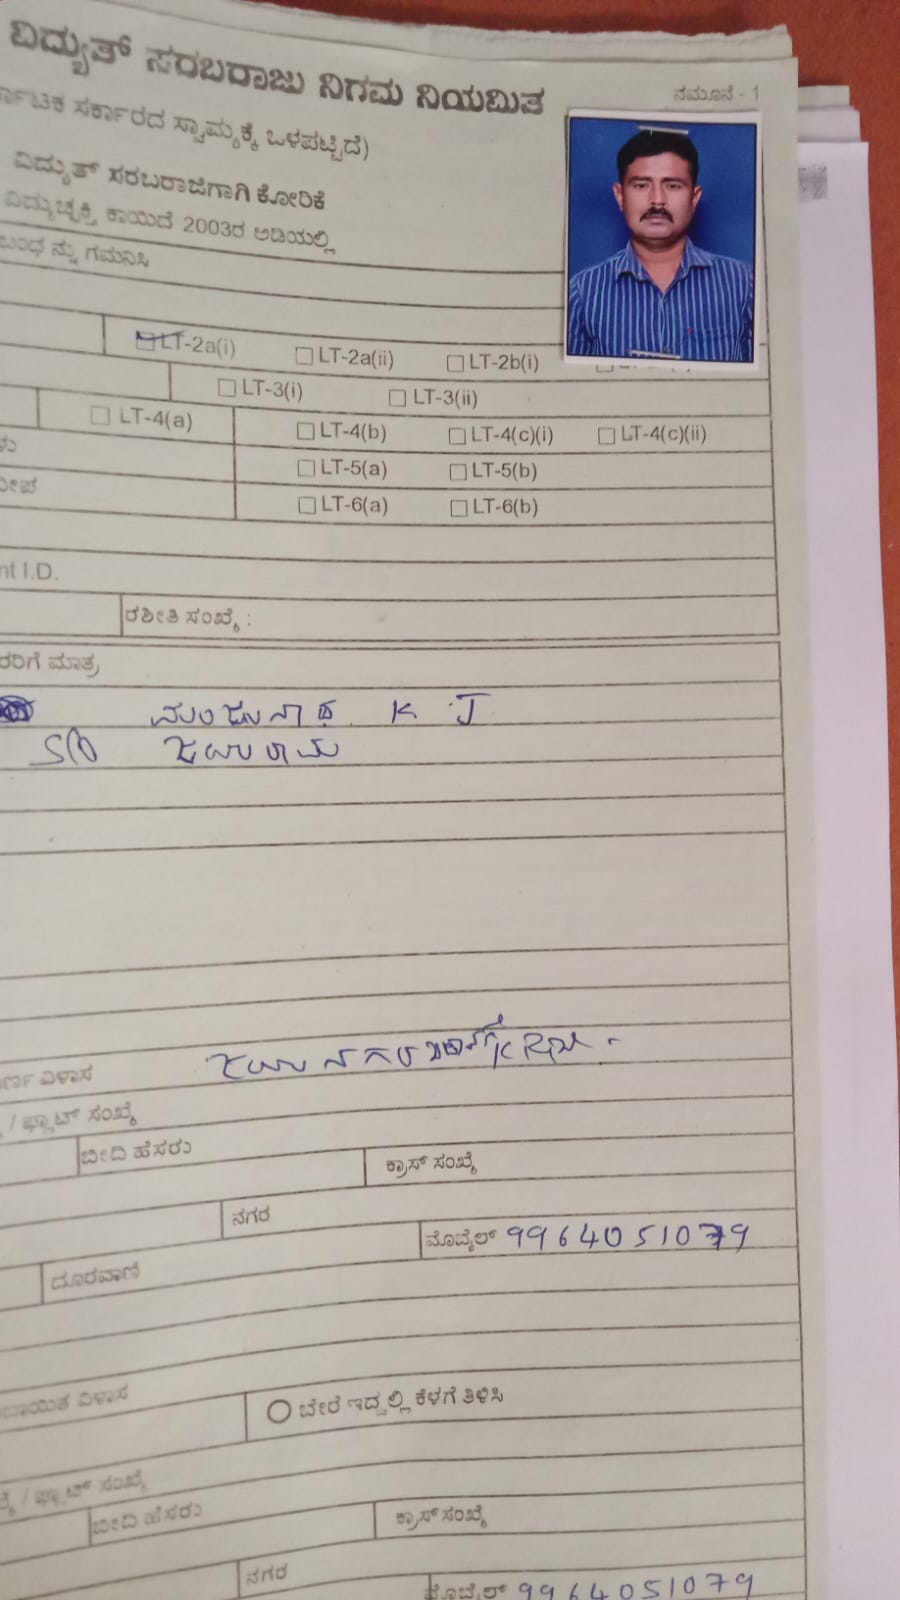 ವಿದ್ಯುತ್ ಸರಬರಾಜು ನಿಗಮ ನಿಯಮಿತ
ನಮೂನೆ - 1
ರ್ನಾಟಕ ಸರ್ಕಾರದ ಸ್ವಾಮ್ಯಕ್ಕೆ ಒಳಪಟ್ಟಿದೆ)
ವಿದ್ಯುತ್ ಸರಬರಾಜಿಗಾಗಿ ಕೋರಿಕೆ
ವಿದ್ಯುಚ್ಛಕ್ತಿ ಕಾಯಿದೆ 2003ರ ಅಡಿಯಲ್ಲಿ
ಬಂಧ ನ್ನು ಗಮನಿಸಿ
LT-2a(i) LT-2a(ii) LT-2b(i)
LT-3(i) LT-3(ii)
LT-4(a) LT-4(b) LT-4(c)(i) LT-4(c)(ii)
LT-5(a) LT-5(b)
ದೀಪ LT-6(a) LT-6(b)
nt I.D.
ರಶೀತಿ ಸಂಖ್ಯೆ :
ದರಿಗೆ ಮಾತ್ರ
ಮಂಜುನಾಥ. K J
S/O ಜಯರಾಮ
ರ್ಣ ವಿಳಾಸ ಜಯನಗರ
/ ಫ್ಲಾಟ್ ಸಂಖ್ಯೆ
ಬೀದಿ ಹೆಸರು ಕ್ರಾಸ್ ಸಂಖ್ಯೆ
ನಗರ
ದೂರವಾಣಿ ಮೊಬೈಲ್ 9964051079
ವಿಳಾಸ ಬೇರೆ ಇದ್ದಲ್ಲಿ ಕೆಳಗೆ ತಿಳಿಸಿ
/ ಫ್ಲಾಟ್ ಸಂಖ್ಯೆ
ಬೀದಿ ಹೆಸರು ಕ್ರಾಸ್ ಸಂಖ್ಯೆ
ನಗರ
ಮೊಬೈಲ್ 9964051079